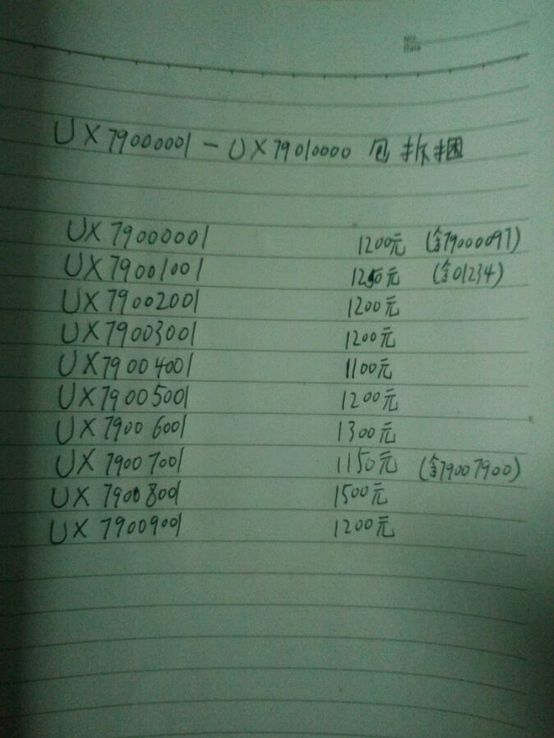 NO.
Date
UX79000001-UX79010000 包拆捆
UX79000001 1200元 (含79000097)
UX79001001 1250元 (含01234)
UX79002001 1200元
UX79003001 1200元
UX79004001 1100元
UX79005001 1200元
UX79006001 1300元
UX79007001 1150元 (含79007900)
UX79008001 1500元
UX79009001 1200元